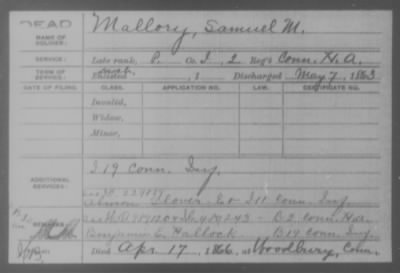 DEAD
NAME OF SOLDIER: Mallory, Samuel M.
SERVICE: Late rank, P. Co. I, 2 Reg't Conn. H. A.
TERM OF SERVICE: Enlisted , 1 Discharged May 7, 1863
DATE OF FILING. CLASS. APPLICATION NO. LAW. CERTIFICATE NO.
Invalid,
Widow,
Minor,
ADDITIONAL SERVICES: I 19 Conn. Inf.
Glover Conn. Inf.
B 2 Conn H.A.
Benjamin E. Hallock B 19 Conn. Inf.
REMARKS:
Died Apr 17, 1866, at Woodbury, Conn.